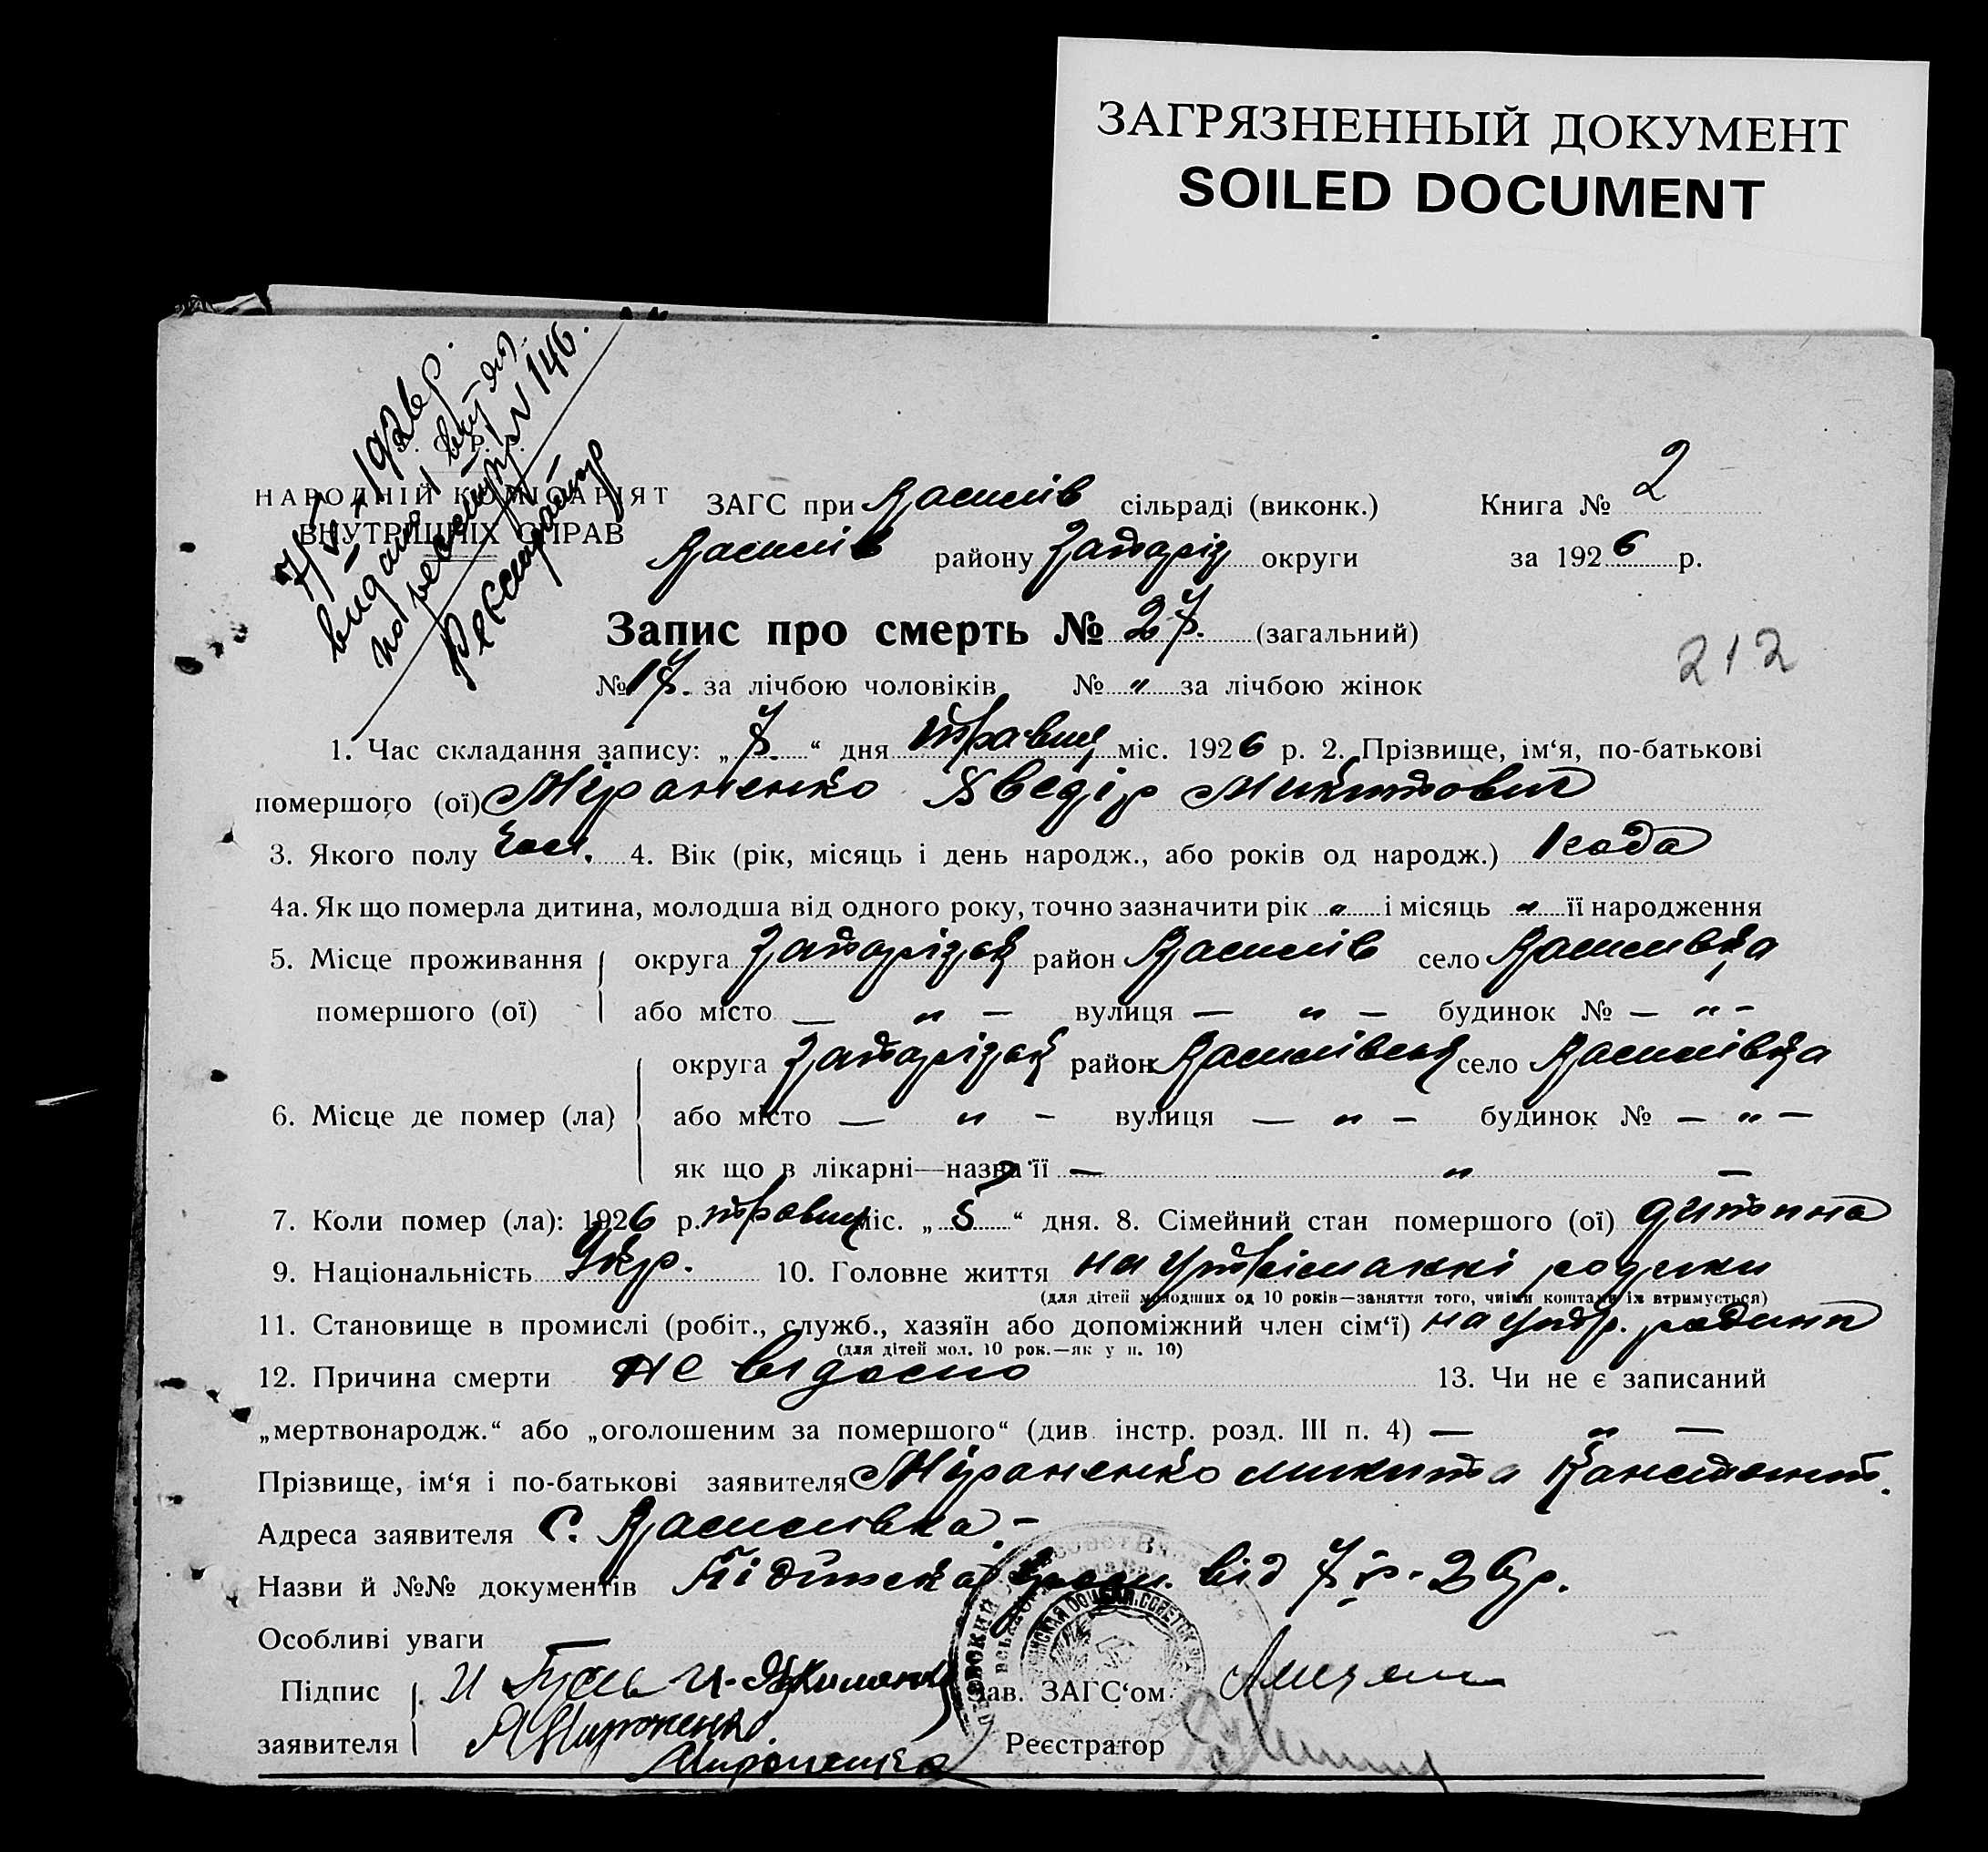 ЗАГРЯЗНЕННЫЙ ДОКУМЕНТ
SOILED DOCUMENT
7/V-1926р.
видано
по
Реєстратор
№ 146.
НАРОДНІЙ КОМІСАРІЯТ
ВНУТРІШНІХ СПРАВ
ЗАГС при Василів сільраді (виконк.) Книга № 2
Василів району Запоріз округи за 1926 р.
Запис про смерть № 27. (загальний)
212
№ 17. за лічбою чоловіків № „ за лічбою жінок
1. Час складання запису: „7.“ дня травня міс. 1926 р. 2. Прізвище, ім‘я, по-батькові
помершого (ої) Міроненко Хведір Микитович
3. Якого полу чол. 4. Вік (рік, місяць і день народж., або років од народж.) 1 года
4а. Як що померла дитина, молодша від одного року, точно зазначити рік „ і місяць „ її народження
5. Місце проживання помершого (ої) округа Запорізьк район Василів село Василивка
або місто — „ — вулиця — „ — будинок № — „ —
6. Місце де помер (ла) округа Запорізьк район Василівськ село Василівка
або місто — „ — вулиця — „ — будинок № — „ —
як що в лікарні—назва її — „ —
7. Коли помер (ла): 1926 р. травня міс. „5“ дня. 8. Сімейний стан помершого (ої) дитина
9. Національність Укр. 10. Головне життя на утріманні
(для дітей молодших од 10 років—заняття того, чиїми коштами їх втримується)
11. Становище в промислі (робіт., служб., хазяїн або допоміжний член сім‘ї) на утр.
(для дітей мол. 10 рок.—як у п. 10)
12. Причина смерти не відомо 13. Чи не є записаний
„мертвонародж.“ або „оголошеним за помершого“ (див. інстр. розд. III п. 4) — „ —
Прізвище, ім‘я і по-батькові заявителя Міроненко Микита Констант.
Адреса заявителя С. Василивка. –
Назви й №№ документів від 7/V-26р.
Особливі уваги
Підпис заявителя И Гусь И.
Мироненко
Зав. ЗАГС‘ом
Реєстратор